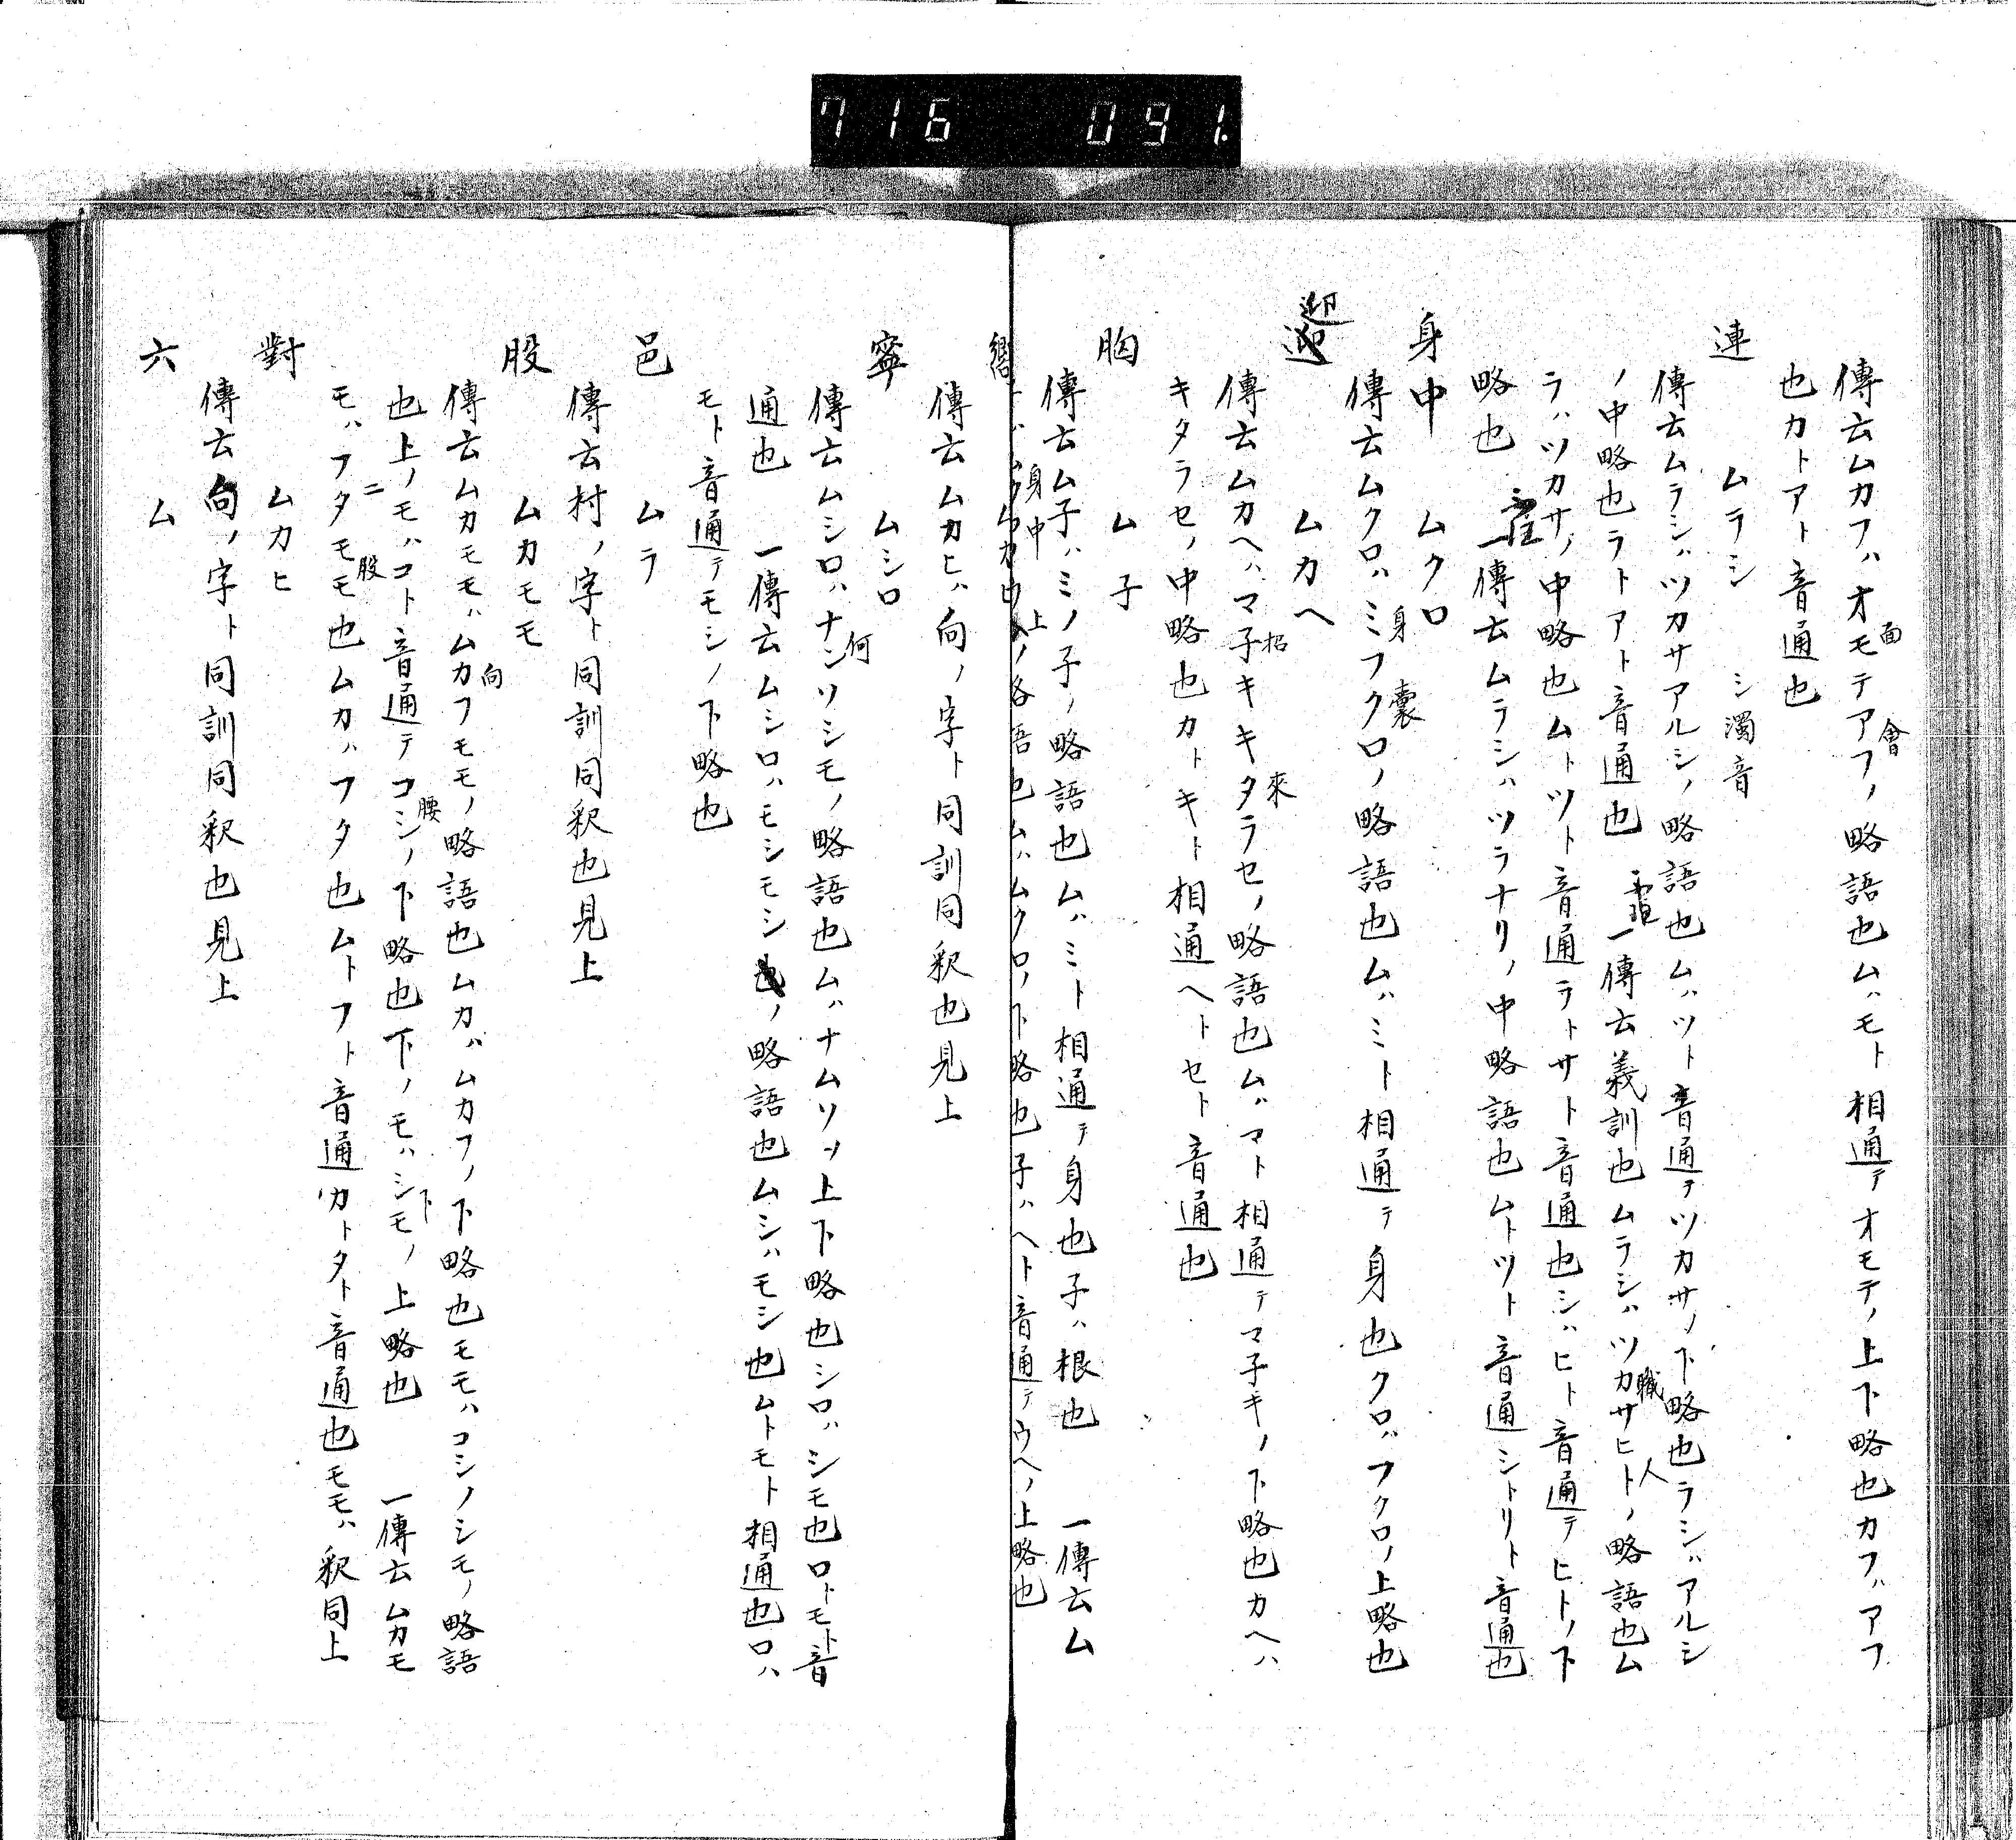 716 091.
傳云ムカフハオモテアフノ略語也ムハモト相通テオモテノ上下略也カフハアフ
面 會
也カトアト音通也
連 ムラシ シ濁音
傳云ムラシハツカサアルシノ略語也ムハツト音通テツカサノ下略也ラシハアルシ
ノ中略也ラトアト音通也 一傳云義訓也ムラシハツカサヒトノ略語也ム
職 人
ラハツカサノ中略也ムトツト音通ラトサト音通也シハヒト音通テヒトノ下
略也 一傳云ムラシハツラナリノ中略語也ムトツト音通シトリト音通也
身中 ムクロ
傳云ムクロハミフクロノ略語也ムハミト相通テ身也クロハフクロノ上略也
身 囊
迎 ムカヘ
傳云ムカヘハマ子キキタラセノ略語也ムハマト相通テマ子キノ下略也カヘハ
招 來
キタラセノ中略也カトキト相通ヘトセト音通也
胸 ム子
傳云ム子ハミノ子ノ略語也ムハミト相通テ身也子ハ根也 一傳云ム
子ハムクロウヘノ略語也ムハムクロノ下略也子ハヘト音通テウヘノ上略也
身中 上
嚮 ムカヒ
傳云ムカヒハ向ノ字ト同訓同釈也見上
寧 ムシロ
傳云ムシロハナンソシモノ略語也ムハナムソソ上下略也シロハシモ也ロトモト音
何
通也 一傳云ムシロハモシモシノ略語也ムシハモシ也ムトモト相通也ロハ
モト音通テモシノ下略也
邑 ムラ
傳云村ノ字ト同訓同釈也見上
股 ムカモモ
傳云ムカモモハムカフモモノ略語也ムカハムカフノ下略也モモハコシノシモノ略語
向
也上ノモハコト音通テコシノ下略也下ノモハシモノ上略也 一傳云ムカモ
腰 下
モハフタモモ也ムカハフタ也ムトフト音通カトタト音通也モモハ釈同上
二 股
對 ムカヒ
傳云向ノ字ト同訓同釈也見上
六 ム